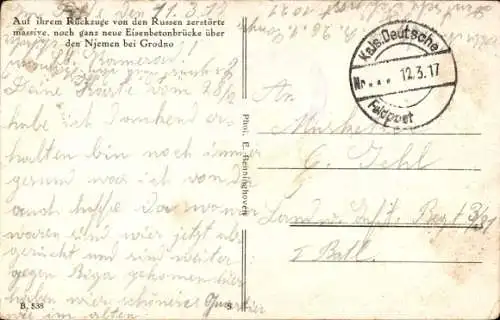 11.3.17
Auf ihrem Rückzuge von den Russen zerstörte
massive, noch ganz neue Eisenbetonbrücke über
den Njemen bei Grodno
Kamerad!
Deine Karte vom 28/2
habe ich dankend er-
halten bin noch immer
gesund was ich von Dir
auch hoffe. Da wo wir
waren sind wier jetzt ab-
gerückt und sind weiter
gegen Riga gekommen hier
haben wier schöneres Quartier
wie im alten.
B. 538
S
Phot. E. Benninghoven
Kais. Deutsche
Nr. . . . 12.3.17
Feldpost
An
Musketier
Landw. Inft. Regt
I Batl.